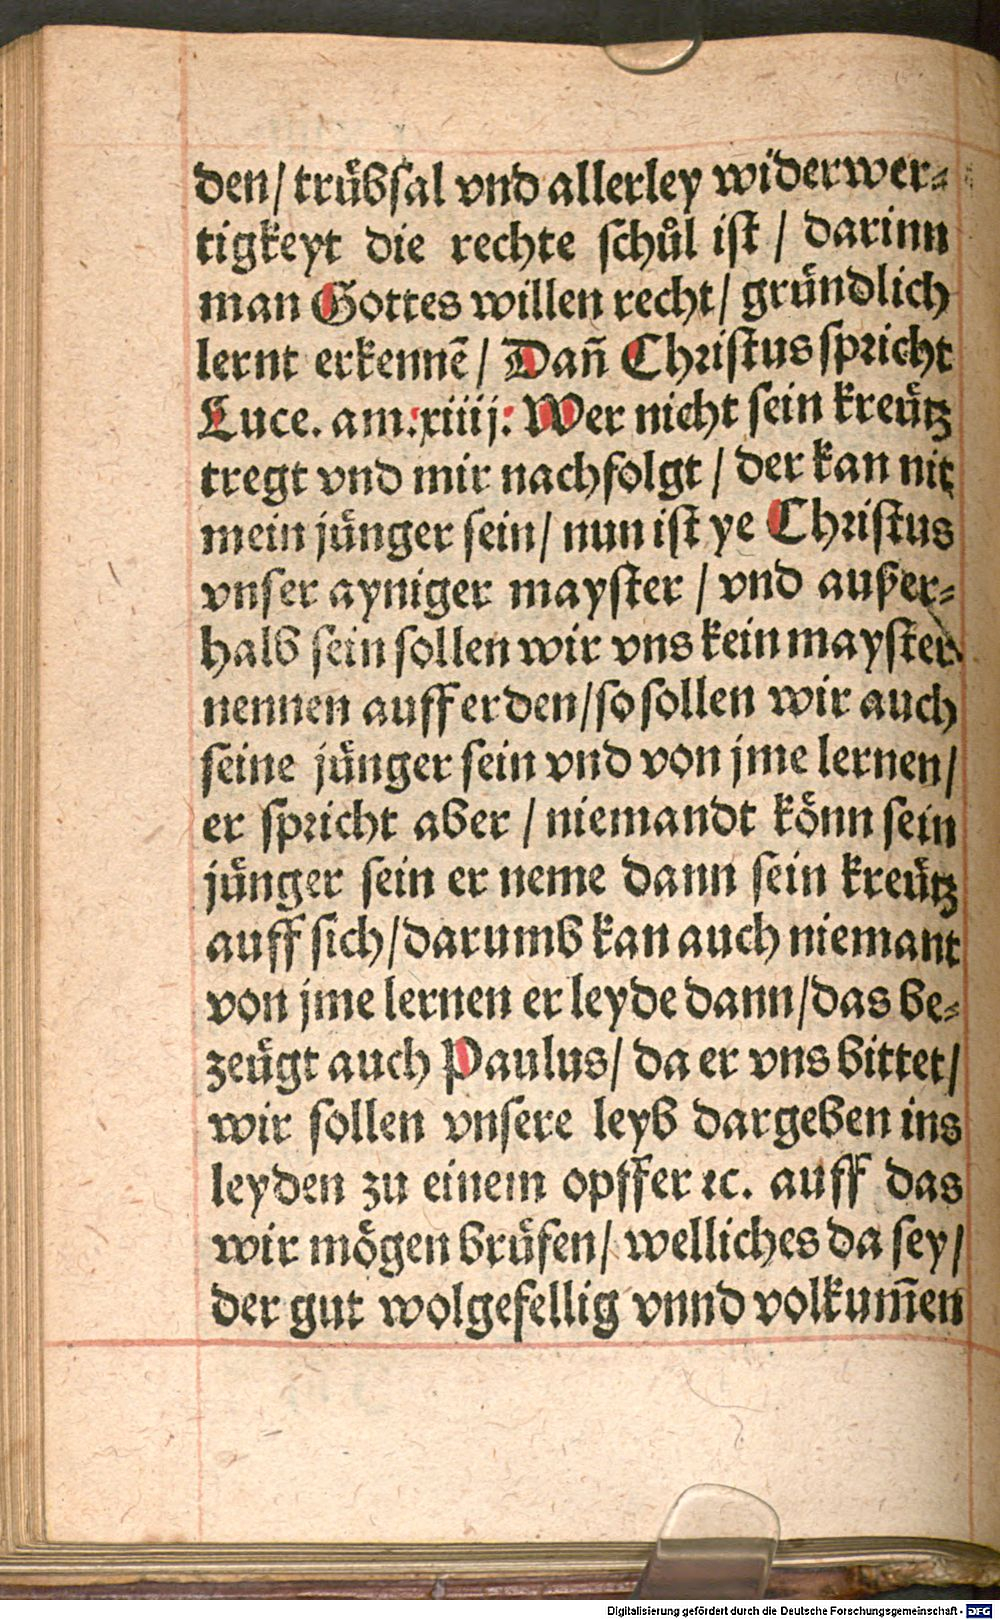 den/ trübſal vnd allerley widerwer⸗
tigkeyt die rechte ſchůl iſt / darinn
man Gottes willen recht/ gründlich
lernt erkennē / Dañ Chriſtus ſpricht
Luce. am. xiiij. Wer nicht ſein kreütz
tregt vnd mir nachfolgt / der kan nit
mein jünger ſein/ nun iſt ye Chriſtus
vnſer ayniger mayſter / vnd außer⸗
halb ſein ſollen wir vns kein mayſter
nennen auff erden/ ſo ſollen wir auch
ſeine jünger ſein vnd von jme lernen/
er ſpricht aber / niemandt könn ſein
jünger ſein er neme dann ſein kreütz
auff ſich/ darumb kan auch niemant
von jme lernen er leyde dann/ das be⸗
zeügt auch Paulus/ da er vns bittet/
wir ſollen vnſere leyb dargeben ins
leyden zu einem opffer ꝛc. auff das
wir mögen brüfen/ welliches da ſey/
der gut wolgefellig vnnd volkum̄en
Digitalisierung gefördert durch die Deutsche Forschungsgemeinschaft - DFG